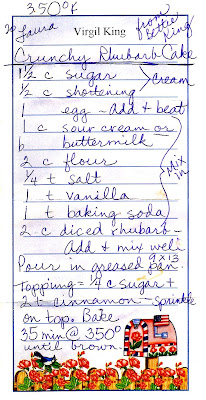 350°F
To Laura
from Bertie King
Virgil King
Crunchy Rhubarb Cake
1½ c sugar
½ c shortening > Cream
1 egg - Add + beat
1 c sour cream or
buttermilk
2 c flour
¼ t salt
1 t vanilla
1 t baking soda
Mix in
2 c diced rhubarb -
Add + mix well
Pour in greased 9x13 pan.
Topping = ½ c sugar +
2 t cinnamon - Sprinkle
on top. Bake
35 min @ 350°
until brown.